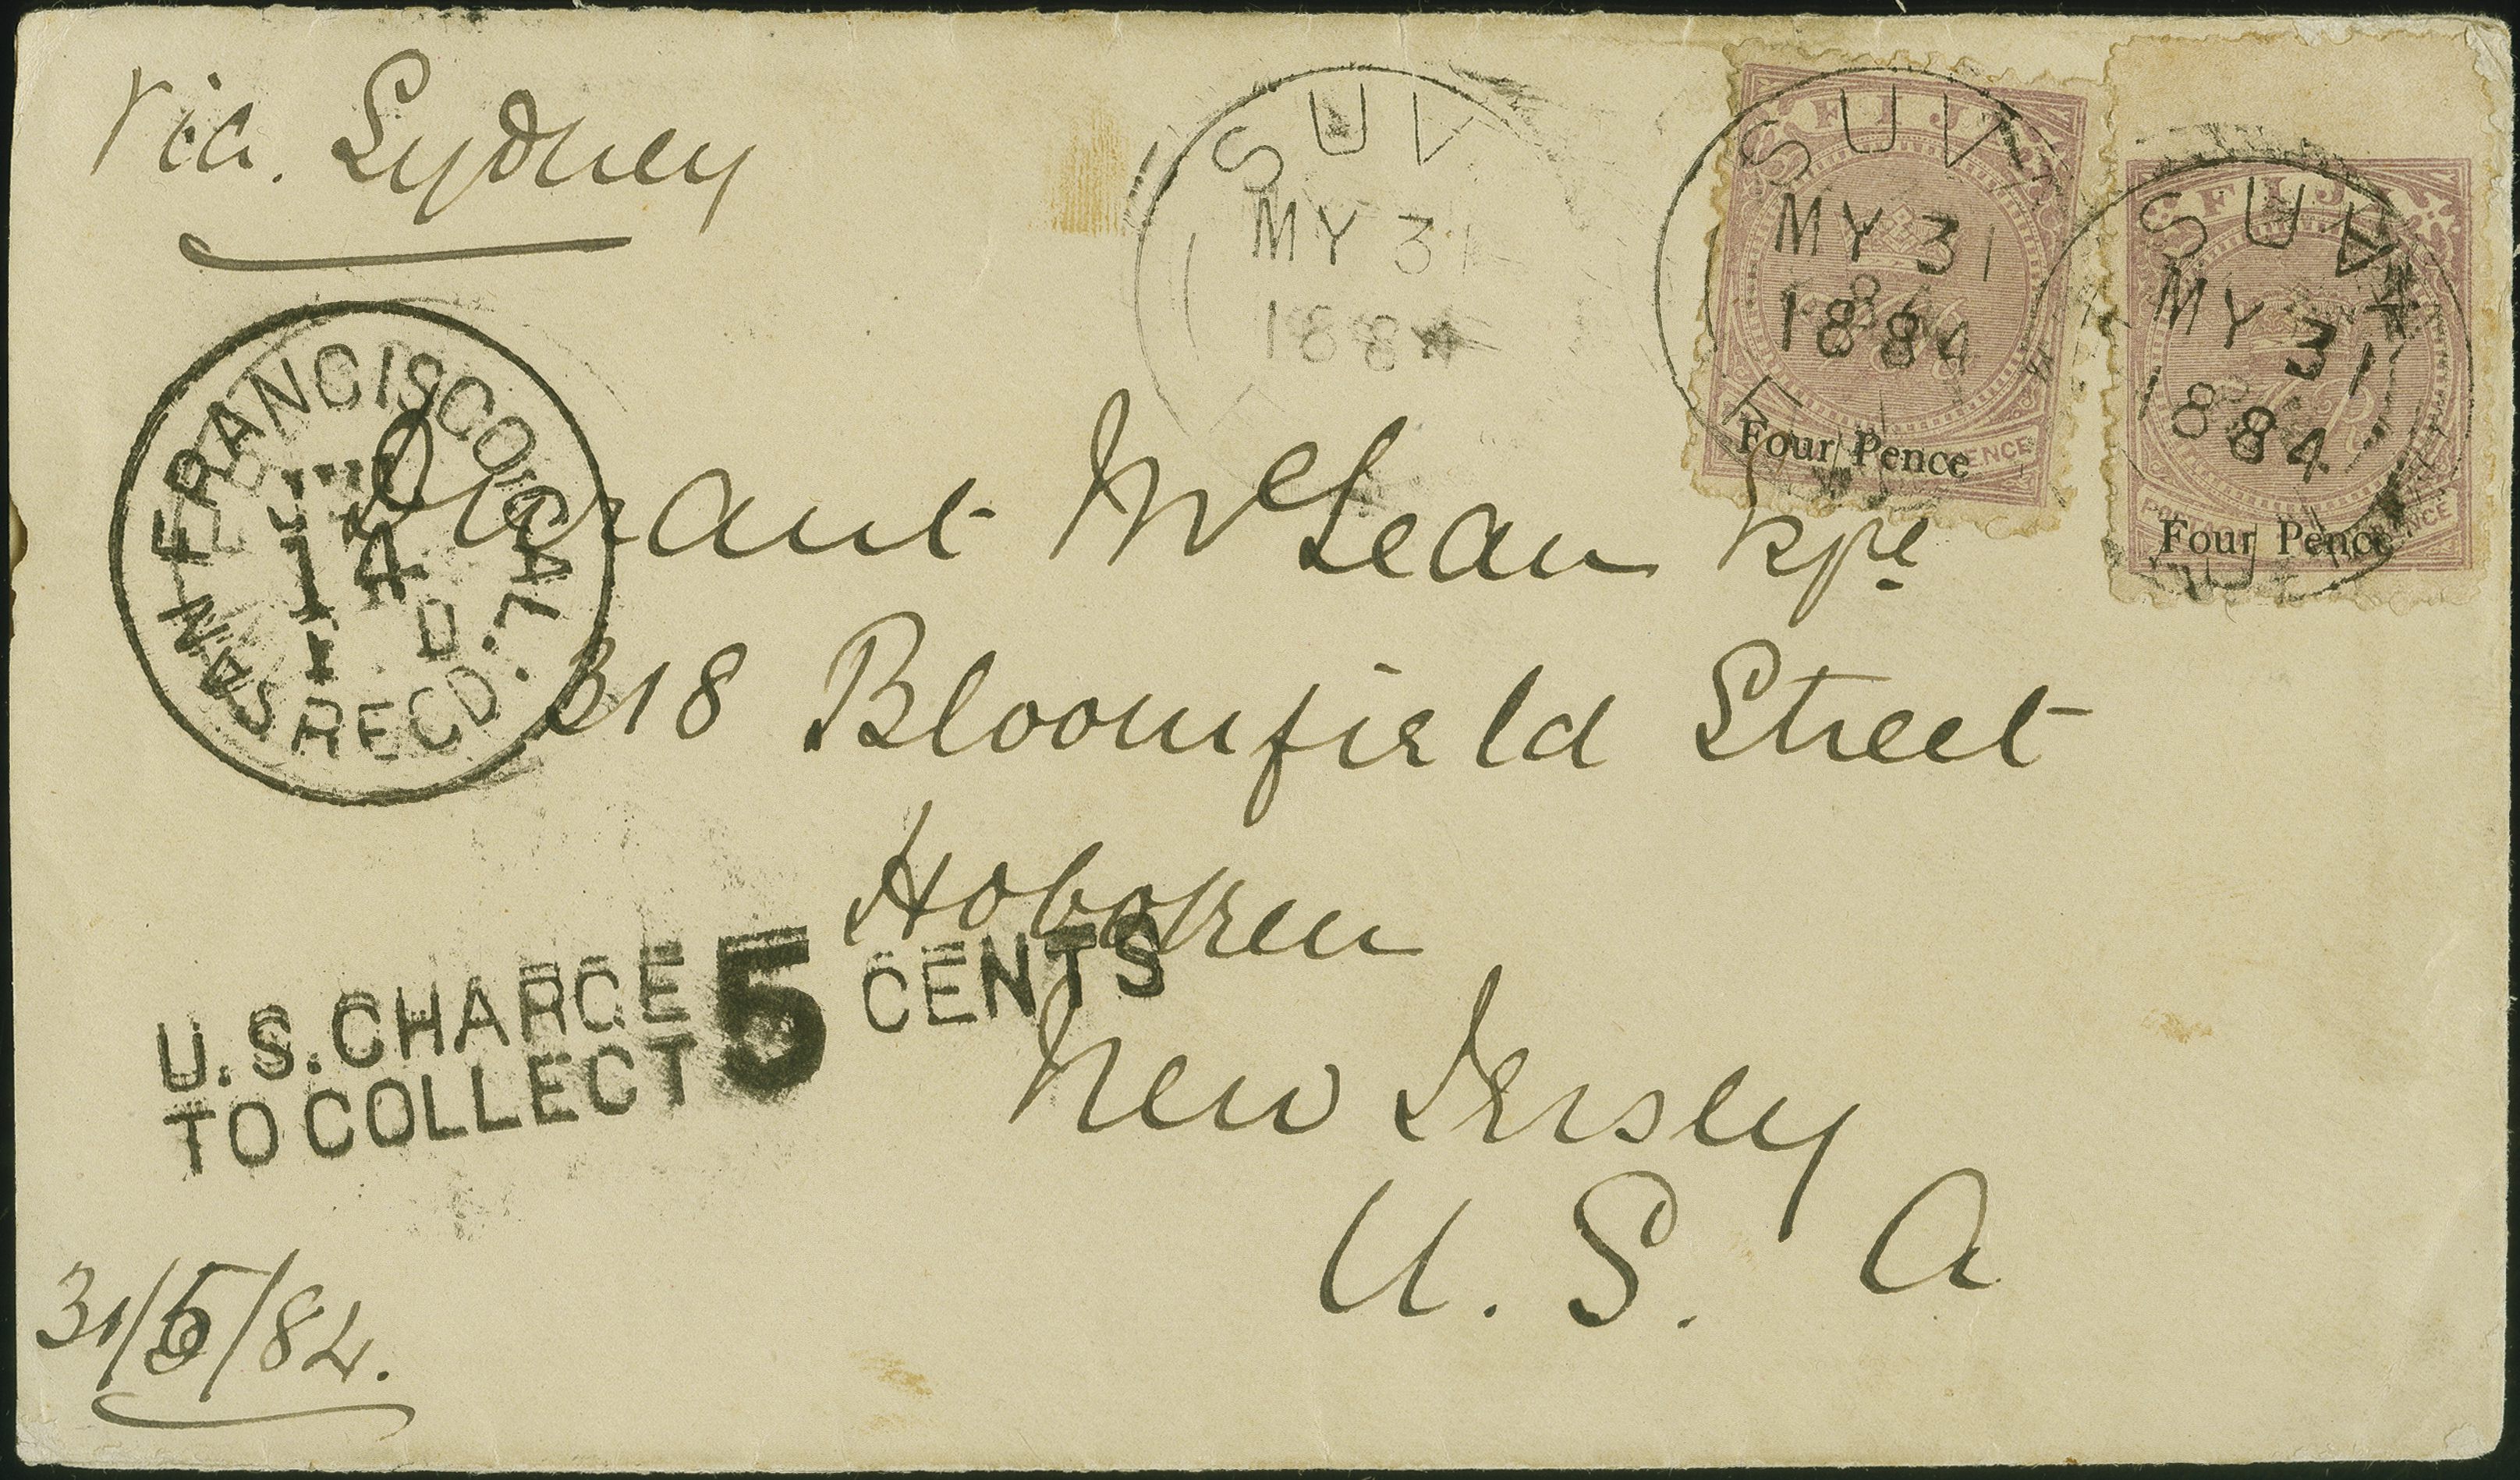 via. Sydney
SUV
MY 31
1884
FIJI
SUVA
MY 31
1884
Four Pence
FIJI
SUVA
MY 31
1884
Four Pence
SAN FRANCISCO, CAL.
14
D
REC'D.
Durant McLean
318 Bloomfield Street
Hoboken
New Jersey
U. S. A
U.S. CHARGE 5 CENTS
TO COLLECT
31/5/84.